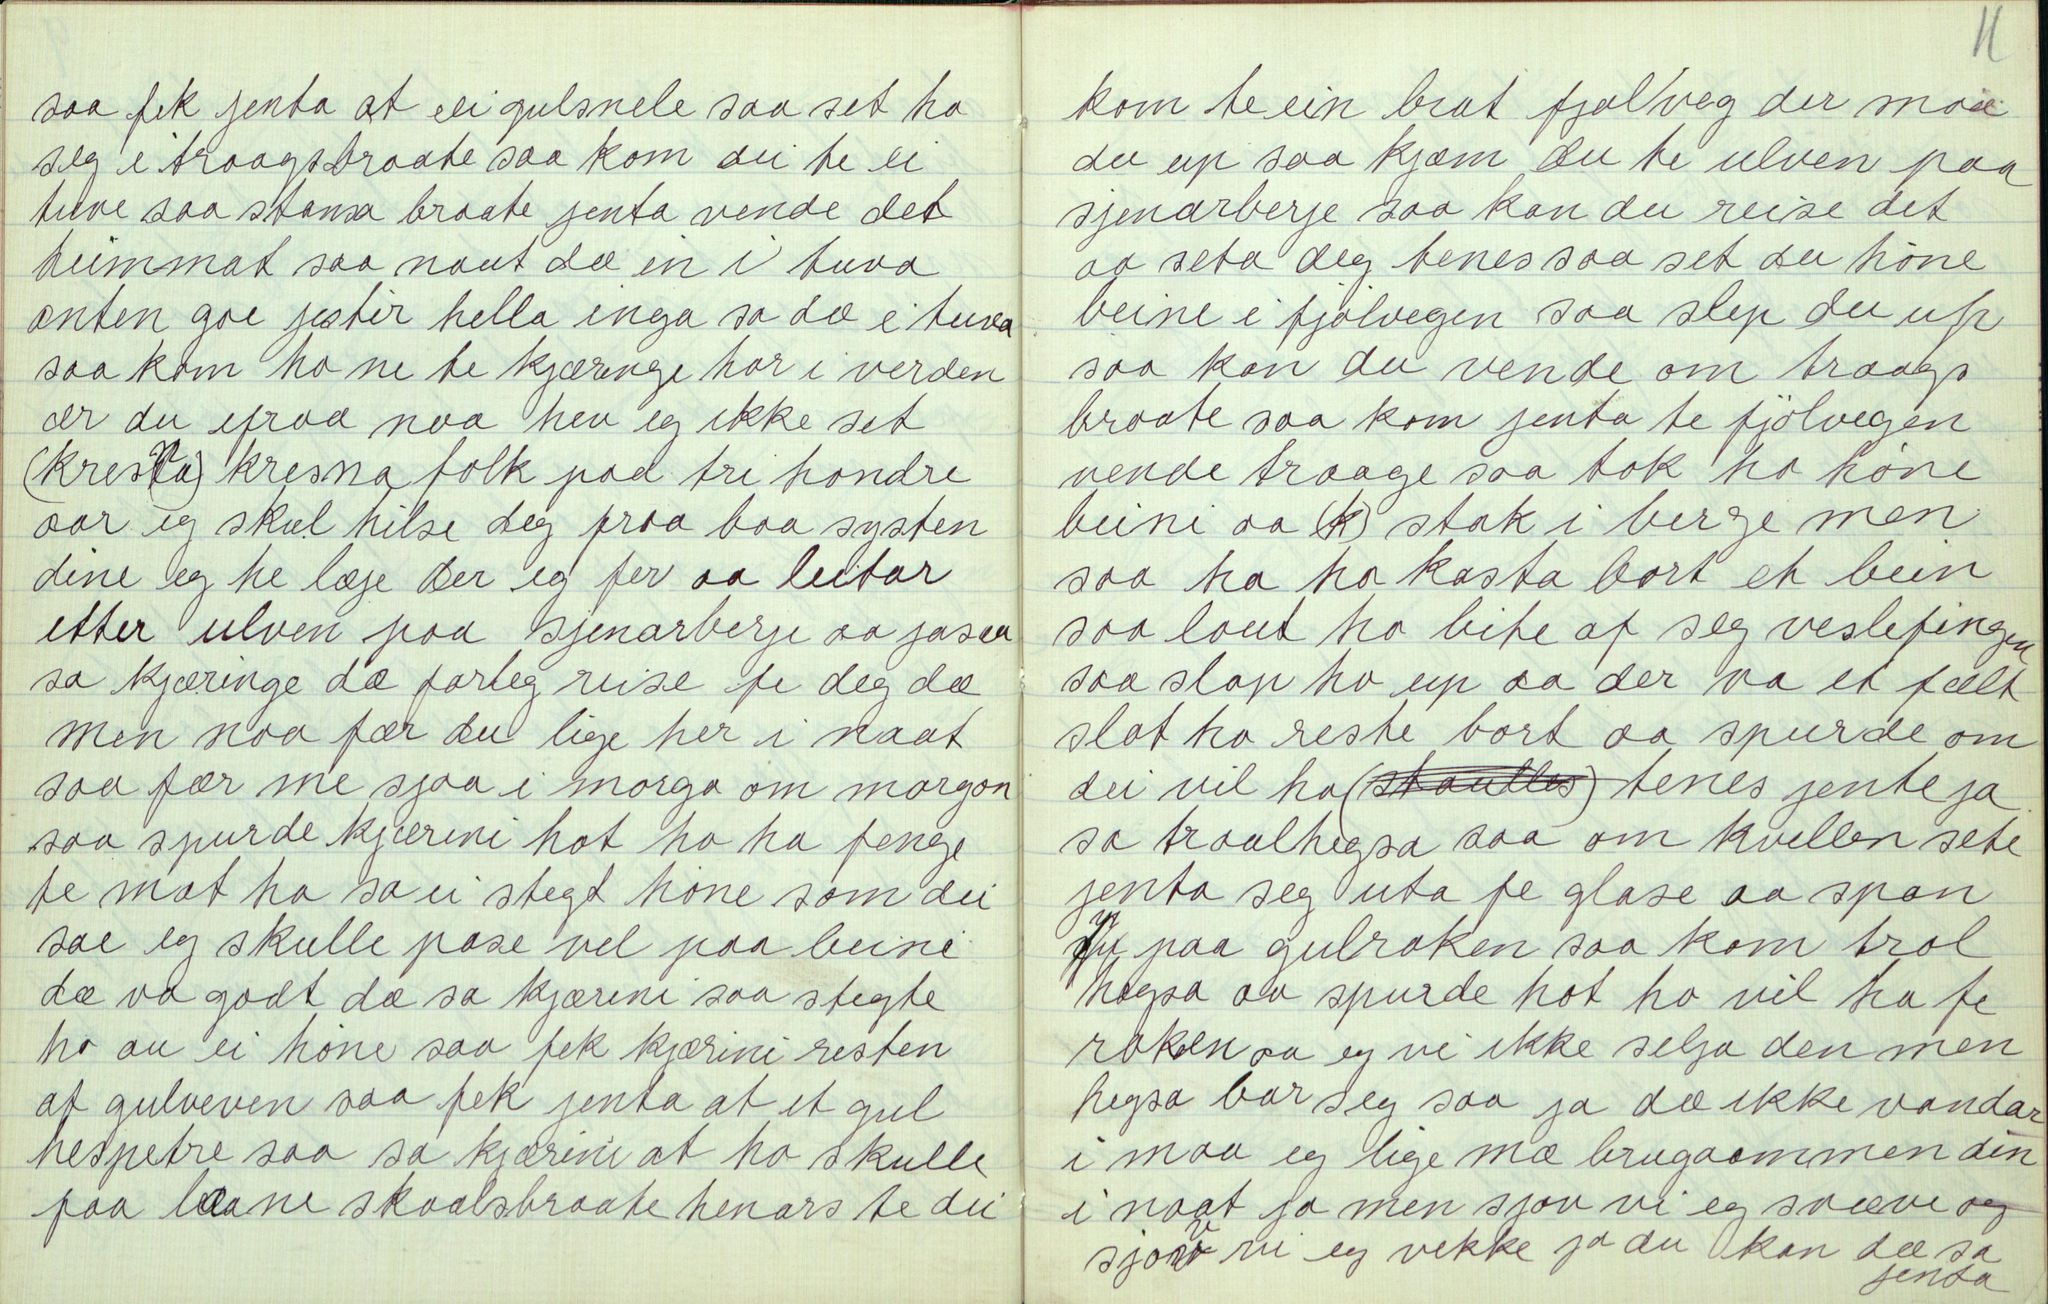 saa fek jenta at ei gulsnele saa set ho
seg i traagsbraate saa kom dei te ei
tuve saa stansa braate jenta vende det
heimmat saa naut dæ in i tuva
anten goe jestir hella inga sa dæ i tuva
saa kom ho ne te kjæringe hor i verden
ær du ifraa naa hev eg ikke set
(kresta) kresna folk paa tri hondre
aar eg skul hilse deg fraa baa systen
dine eg he læje der eg fer aa leitar
etter ulven paa sjenarberje aa jasaa
sa kjæringe dæ farleg reise fe deg dæ
men naa fær du lige her i naat
saa fær me sjaa i morga om morgon
saa spurde kjærini hot ho ha fenge
te mat ho sa ei stegt høne som dei
sae eg skulle pase vel paa beini
dæ va godt dæ sa kjærini saa stegte
ho au ei høne saa fek kjærini resten
at gulveven saa fek jenta at et gul
hespetre saa sa kjærini at ho skulle
faa laane skaalsbraate henars te dei
11
kom te ein brat fjølveg der maa
du up saa kjæm du te ulven paa
sjenarberje saa kan du reise det
aa seta deg tenes saa set du høne
beine i fjølvegen saa slep du up
saa kan du vende om traags
braate saa kom jenta te fjølvegen
vende traage saa tok ho høne
beini aa (k) stak i berge men
saa ha ho kasta bort et bein
saa laut ho bite af seg veslefingen
saa slap ho up aa der va et fælt
slot ho reste bort aa spurde om
dei vil ha (staulles) tenes jente ja
sa traalhegsa saa om kvellen sete
jenta seg uta fe glase aa span
paa gulroken saa kom trol
hegsa aa spurde hot ho vil ha fe
roken sa eg vi ikke selja den men
hegsa bar seg saa ja dæ ikke vandar
i maa eg lige mæ brugaommen din
i naat ja men sjøv vi eg svæve og
sjøv vi eg vekke ja du kan dæ sa
jenta